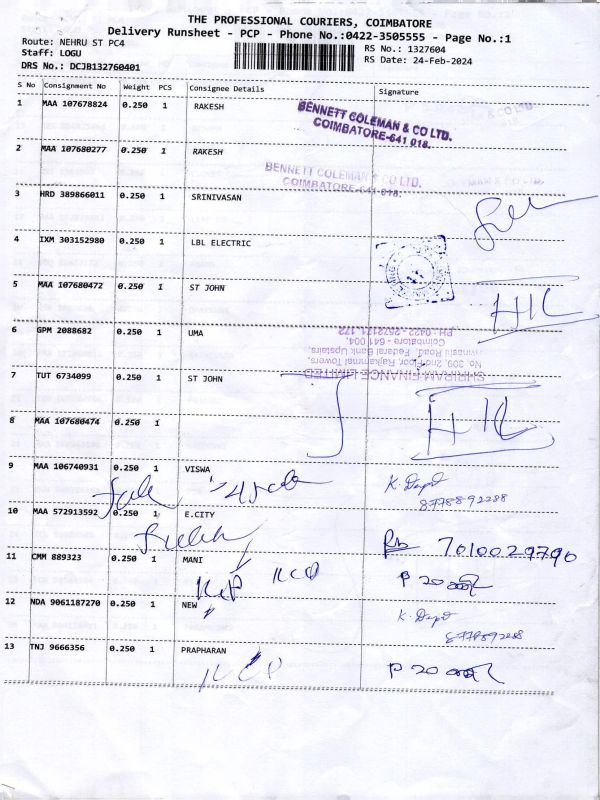 THE PROFESSIONAL COURIERS, COIMBATORE
Delivery Runsheet - PCP - Phone No.:0422-3505555 - Page No.:1
Route: NEHRU ST PC4
RS No.: 1327604
Staff: LOGU
RS Date: 24-Feb-2024
DRS No.: DCJB132760401
S No Consignment No Weight PCS Consignee Details Signature
1 MAA 107678824 0.250 1 RAKESH
BENNETT COLEMAN & CO LTD.
COIMBATORE-641 018.
2 MAA 107680277 0.250 1 RAKESH
BENNETT COLEMAN & CO LTD.
COIMBATORE-641 018.
3 HRD 389866011 0.250 1 SRINIVASAN
4 IXM 303152980 0.250 1 LBL ELECTRIC
5 MAA 107680472 0.250 1 ST JOHN
6 GPM 2088682 0.250 1 UMA
SHRIRAM FINANCE LIMITED
No. 309, 2nd Floor, Rajkannal Towers,
Avinashi Road, Federal Bank Upstairs,
Coimbatore - 641 004.
7 TUT 6734099 0.250 1 ST JOHN
8 MAA 107680474 0.250 1
9 MAA 106740931 0.250 1 VISWA
8778892288
10 MAA 572913592 0.250 1 E.CITY
7010029790
11 CMM 889323 0.250 1 MANI
12 NDA 9061187270 0.250 1 NEW
8778892288
13 TNJ 9666356 0.250 1 PRAPHARAN